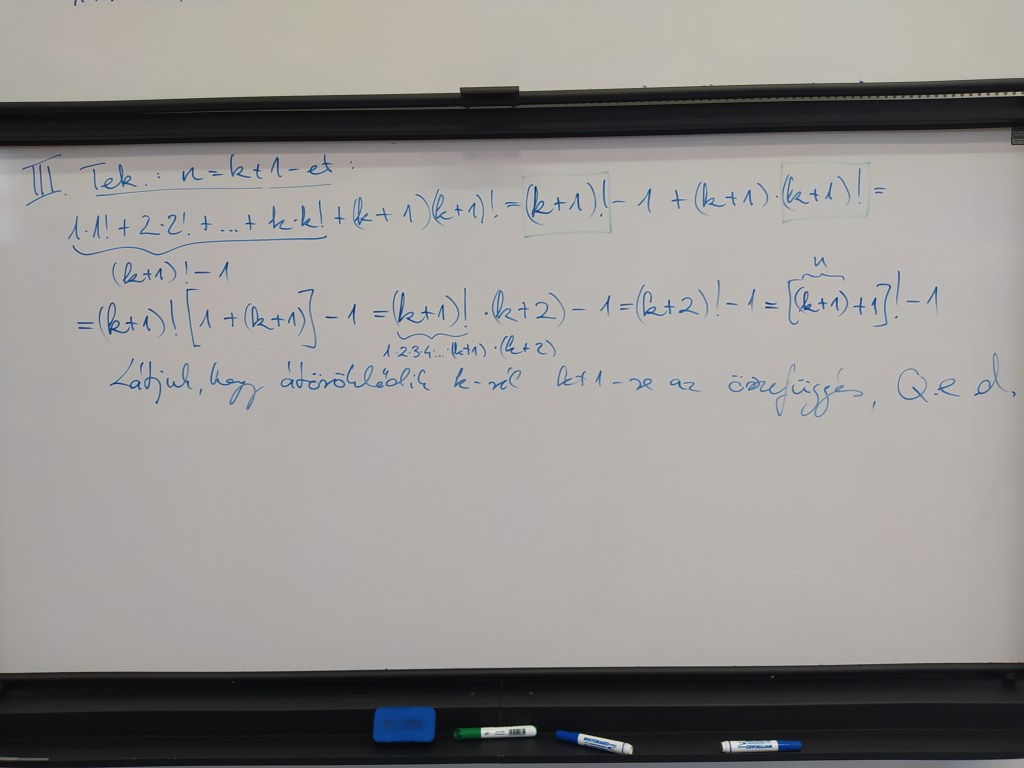 III. Tek.: n=k+1-et:
1·1!+2·2!+...+k·k!+(k+1)(k+1)!=(k+1)!-1+(k+1)·(k+1)!=
(k+1)!-1
n
=(k+1)![1+(k+1)]-1=(k+1)!·(k+2)-1=(k+2)!-1=[(k+1)+1]!-1
1·2·3·4·...·(k+1)·(k+2)
Látjuk, hogy átöröklődik k-ról k+1-re az összefüggés, Q.e.d.